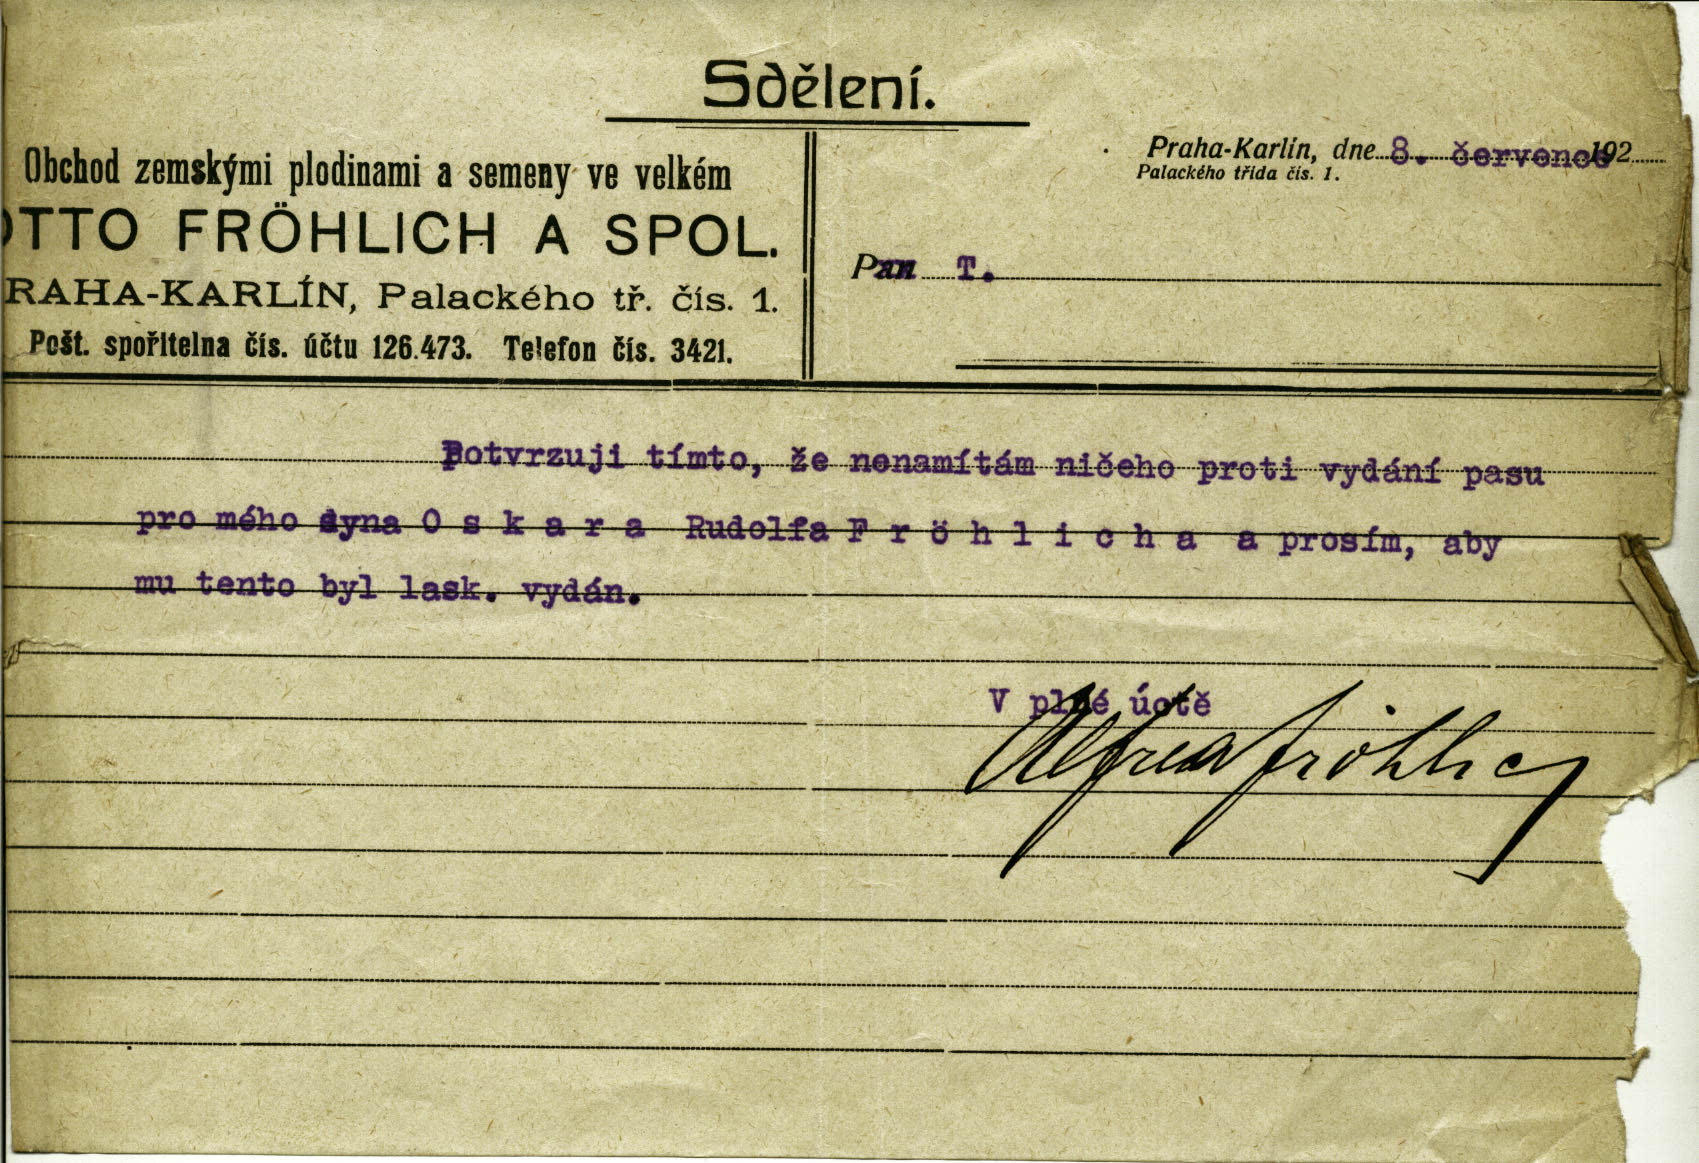 Sdělení.
Obchod zemskými plodinami a semeny ve velkém
OTTO FRÖHLICH A SPOL.
PRAHA-KARLÍN, Palackého tř. čís. 1.
Pošt. spořitelna čís. účtu 126.473. Telefon čís. 3421.
Praha-Karlín, dne 8. července 192
Palackého třída čís. 1.
Pan T.
Potvrzuji tímto, že nenamítám ničeho proti vydání pasu
pro mého syna O s k a r a Rudolfa F r ö h l i c h a a prosím, aby
mu tento byl lask. vydán.
V plné úctě
Alfred Fröhlich